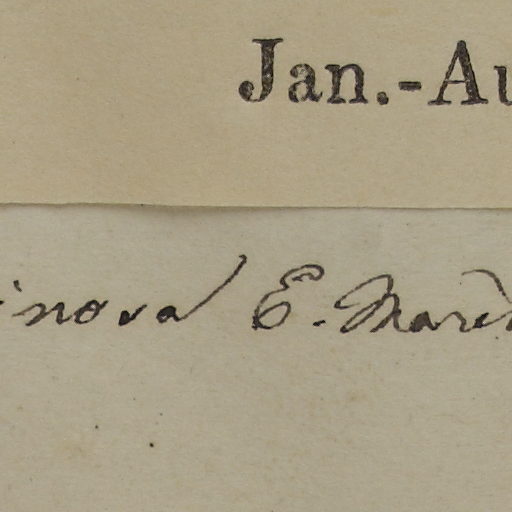 Jan.-Au
inova E. Mari